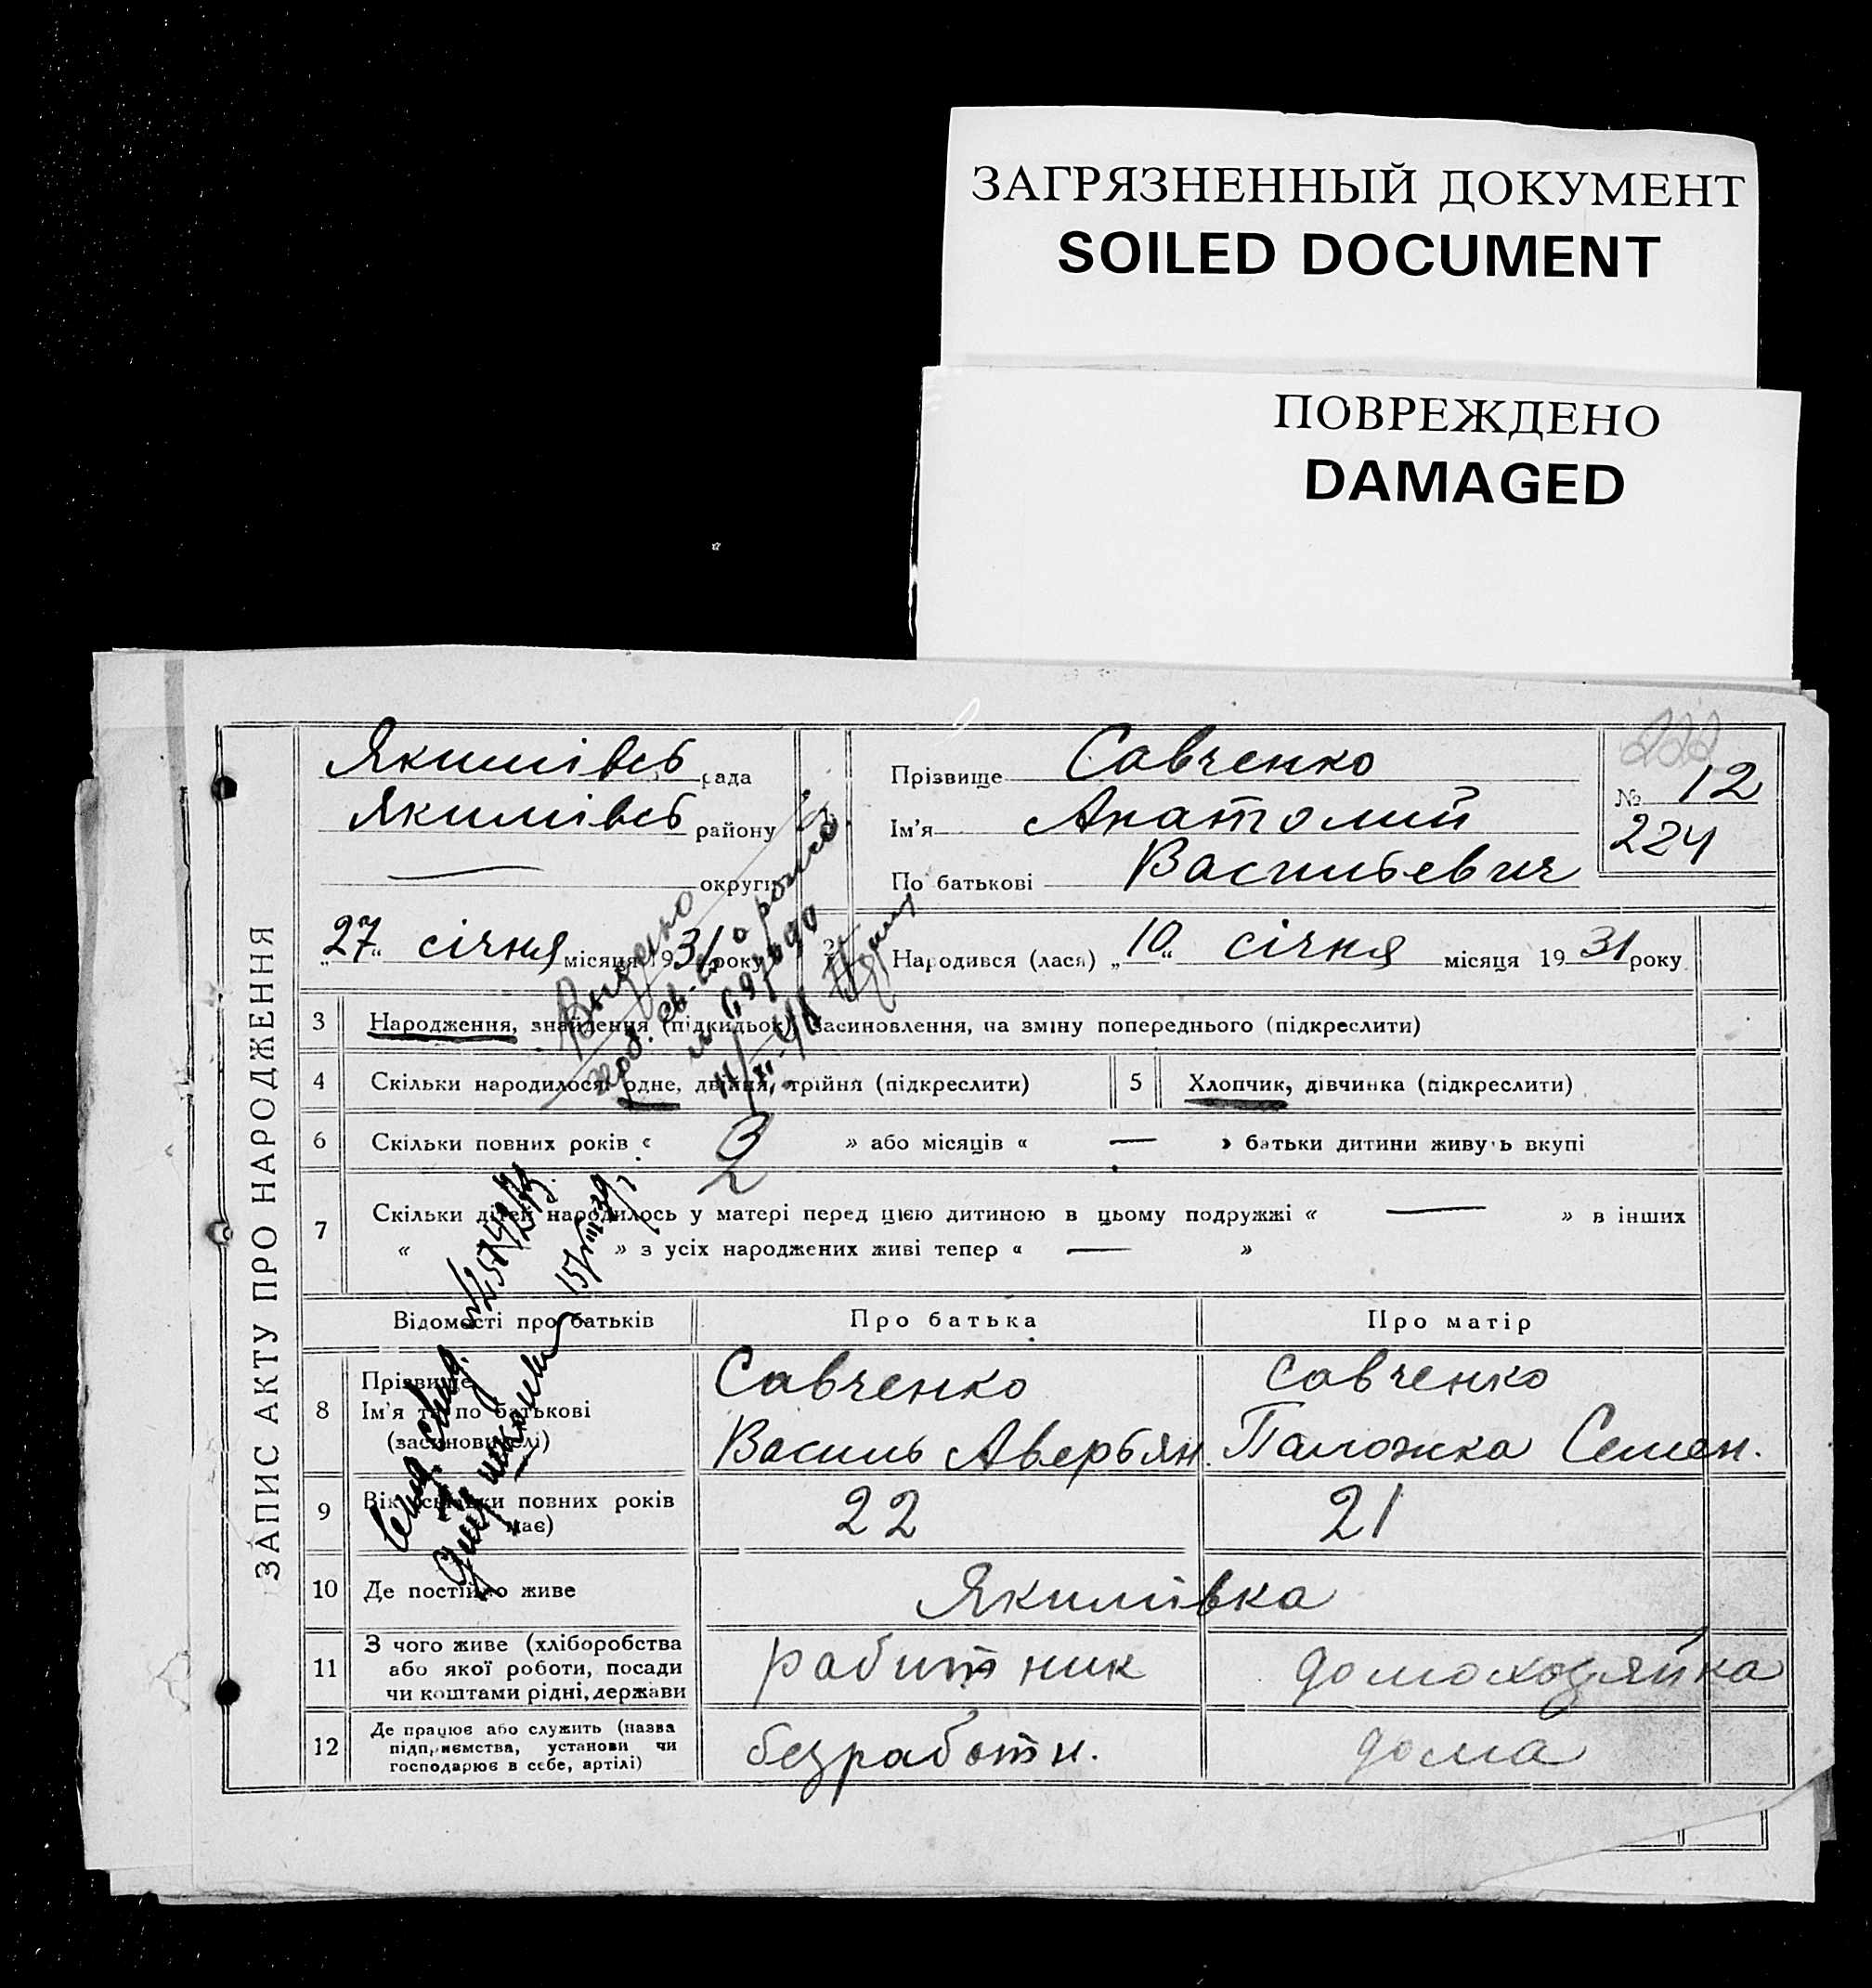 ЗАГРЯЗНЕННЫЙ ДОКУМЕНТ
SOILED DOCUMENT
ПОВРЕЖДЕНО
DAMAGED
ЗАПИС АКТУ ПРО НАРОДЖЕННЯ
222
Якимівсь рада
Якимівсь району
— округи
Прізвище Савченко
Ім'я Анатолий
По батькові Васильевич
№ 12
224
„27“ січня місяця 1931 року
2 Народився (лася) „10“ січня місяця 1931 року
Выдано
св-во о рожд.
3 Народження, знайдення (підкидьок), засиновлення, на зміну попереднього (підкреслити)
4 Скільки народилося: одне, двійня, трійня (підкреслити)
5 Хлопчик, дівчинка (підкреслити)
6 Скільки повних років « 2 » або місяців « — » батьки дитини живуть вкупі
7 Скільки дітей народилось у матері перед цією дитиною в цьому подружжі « — » в інших
« » з усіх народжених живі тепер « — »
Відомості про батьків
Про батька
Про матір
8 Прізвище
Ім'я та по батькові
(засиновителі)
Савченко
Василь Авербян.
Савченко
Паложка Семен.
9 Вік (скільки повних років має)
22
21
10 Де постійно живе
Якимівка
11 З чого живе (хліборобства
або якої роботи, посади
чи коштами рідні, держави
рабитник
домохозяйка
12 Де працює або служить (назва
підприємства, установи чи
господарює в себе, артілі)
безработн.
дома